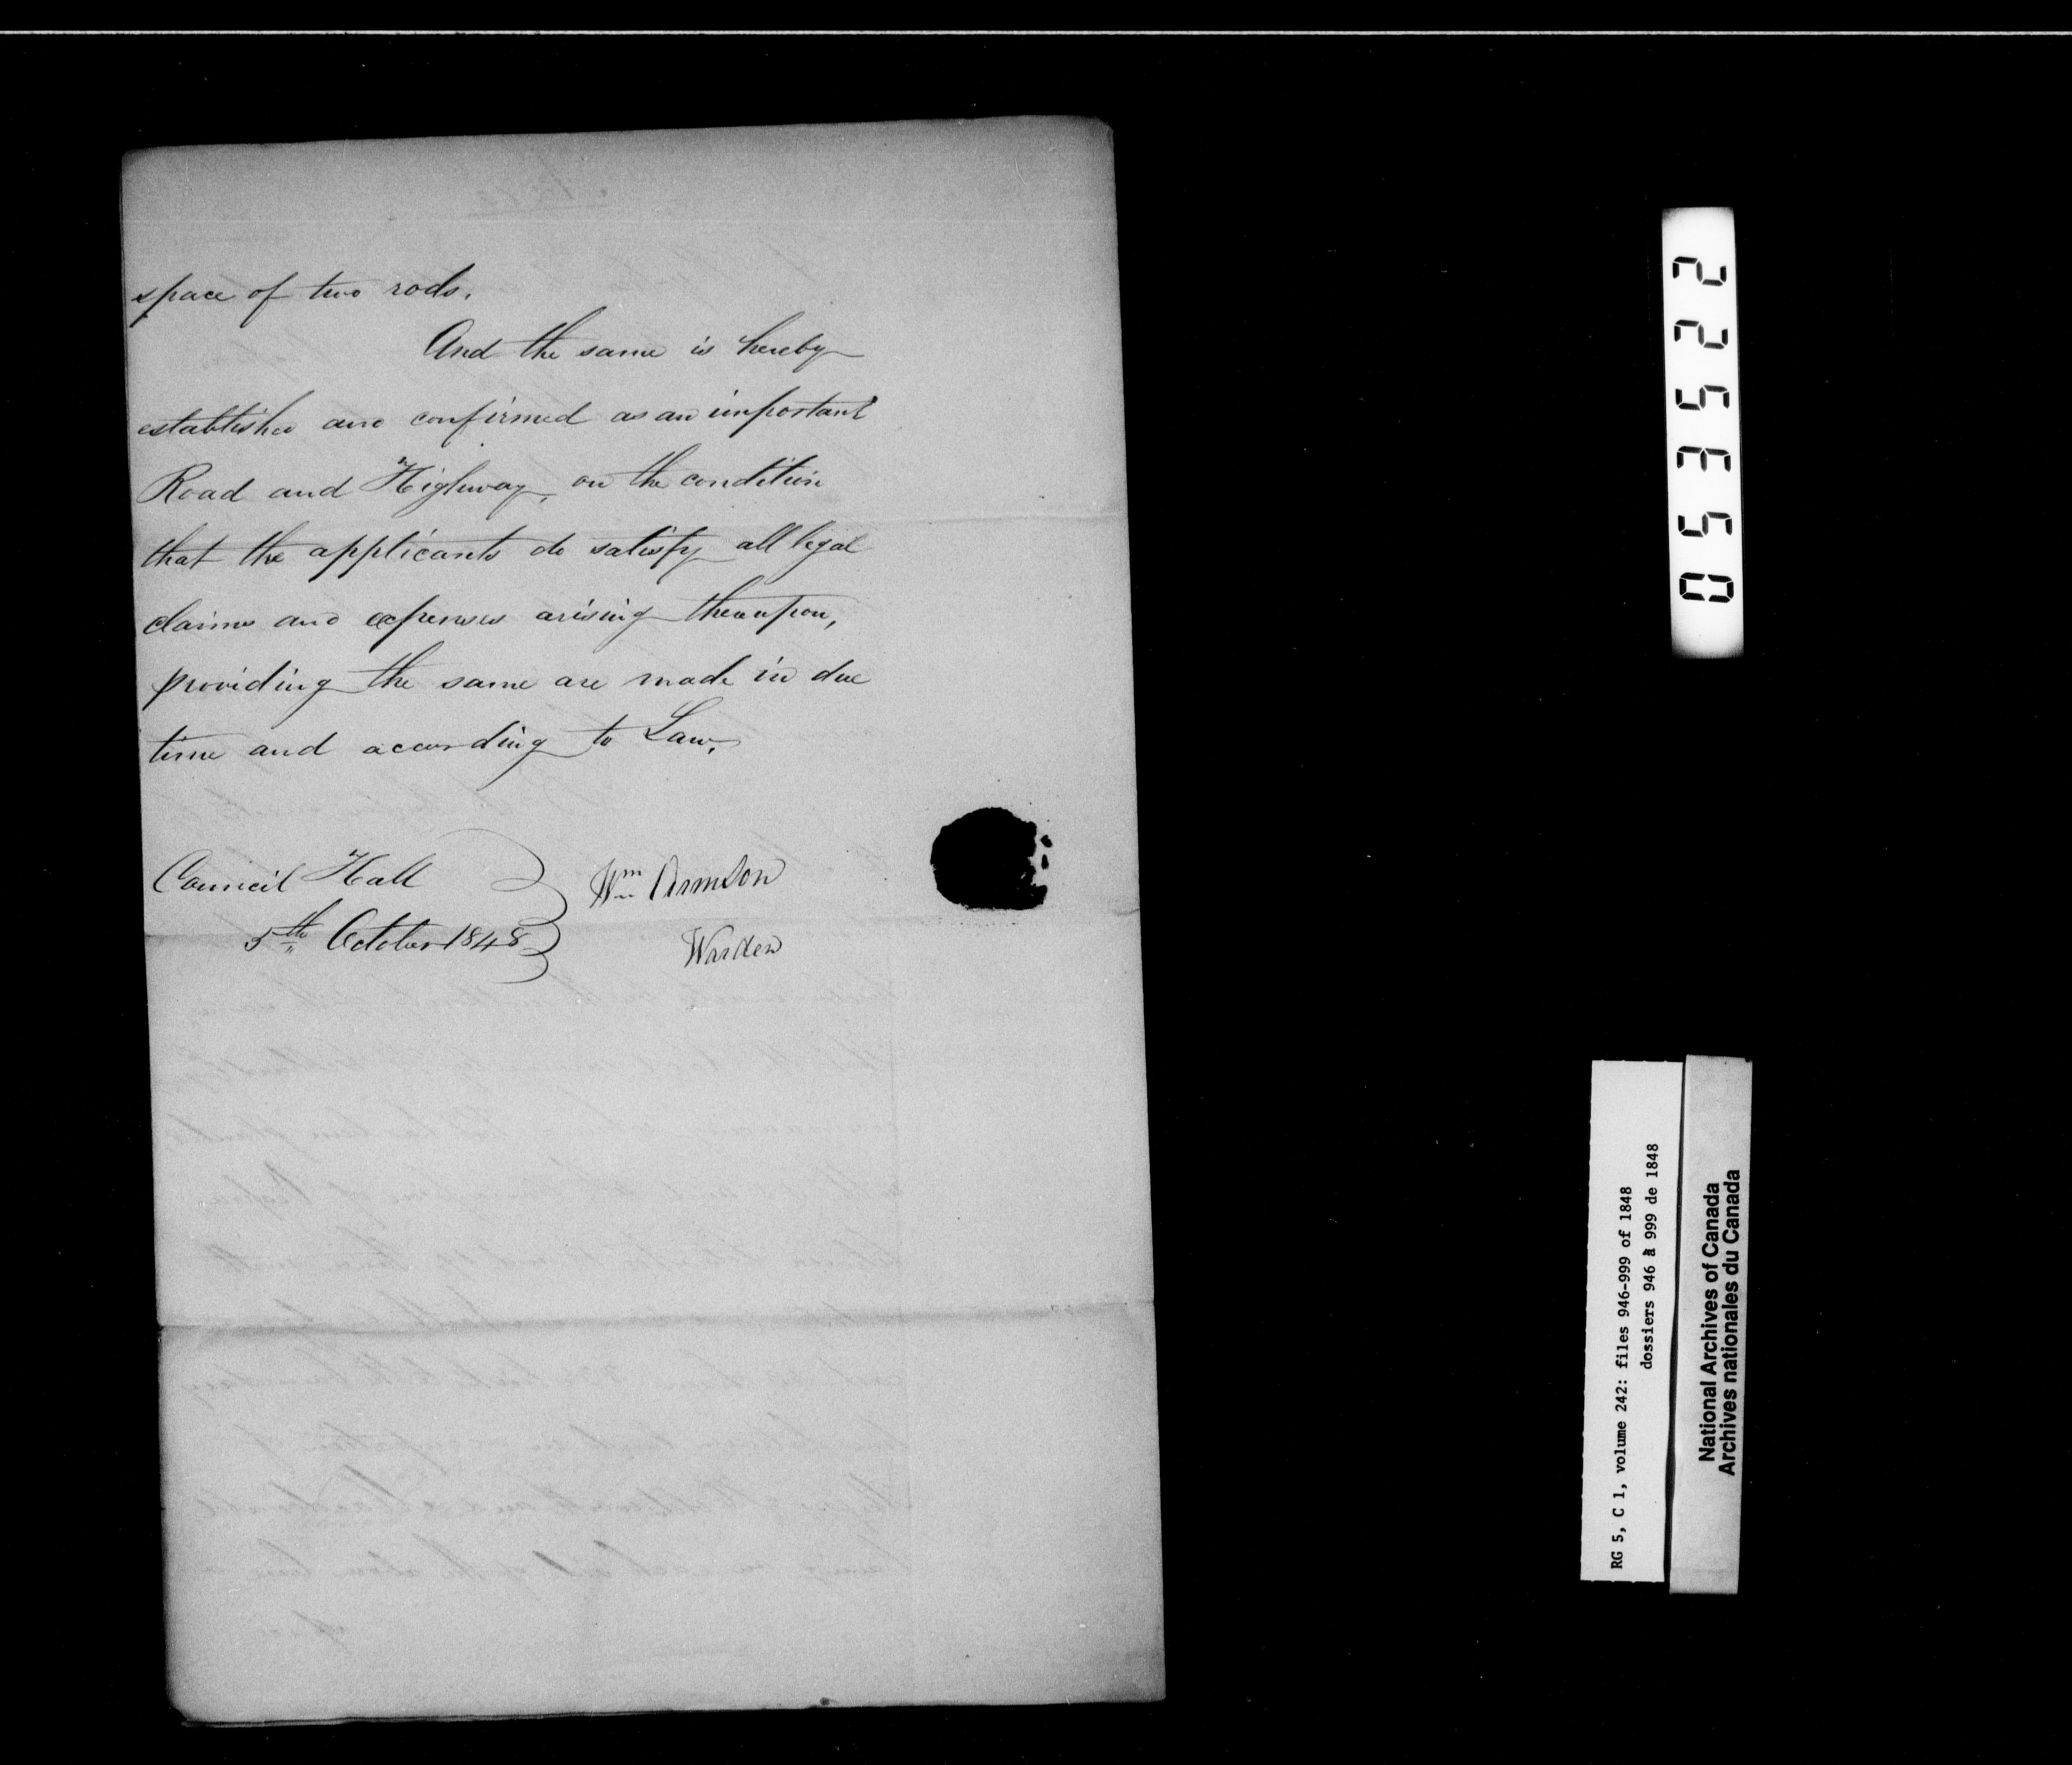 space of two rods.
And the same is hereby
established and confirmed as an important
Road and Highway, on the condition
that the applicants do satisfy all legal
claims and expenses arising thereupon,
providing the same are made in due
time and according to Law.
Council Hall
5th October 1848
Wm Armson
Warden
053522
RG 5, C 1, volume 242: files 946-999 of 1848
dossiers 946 à 999 de 1848
National Archives of Canada
Archives nationales du Canada